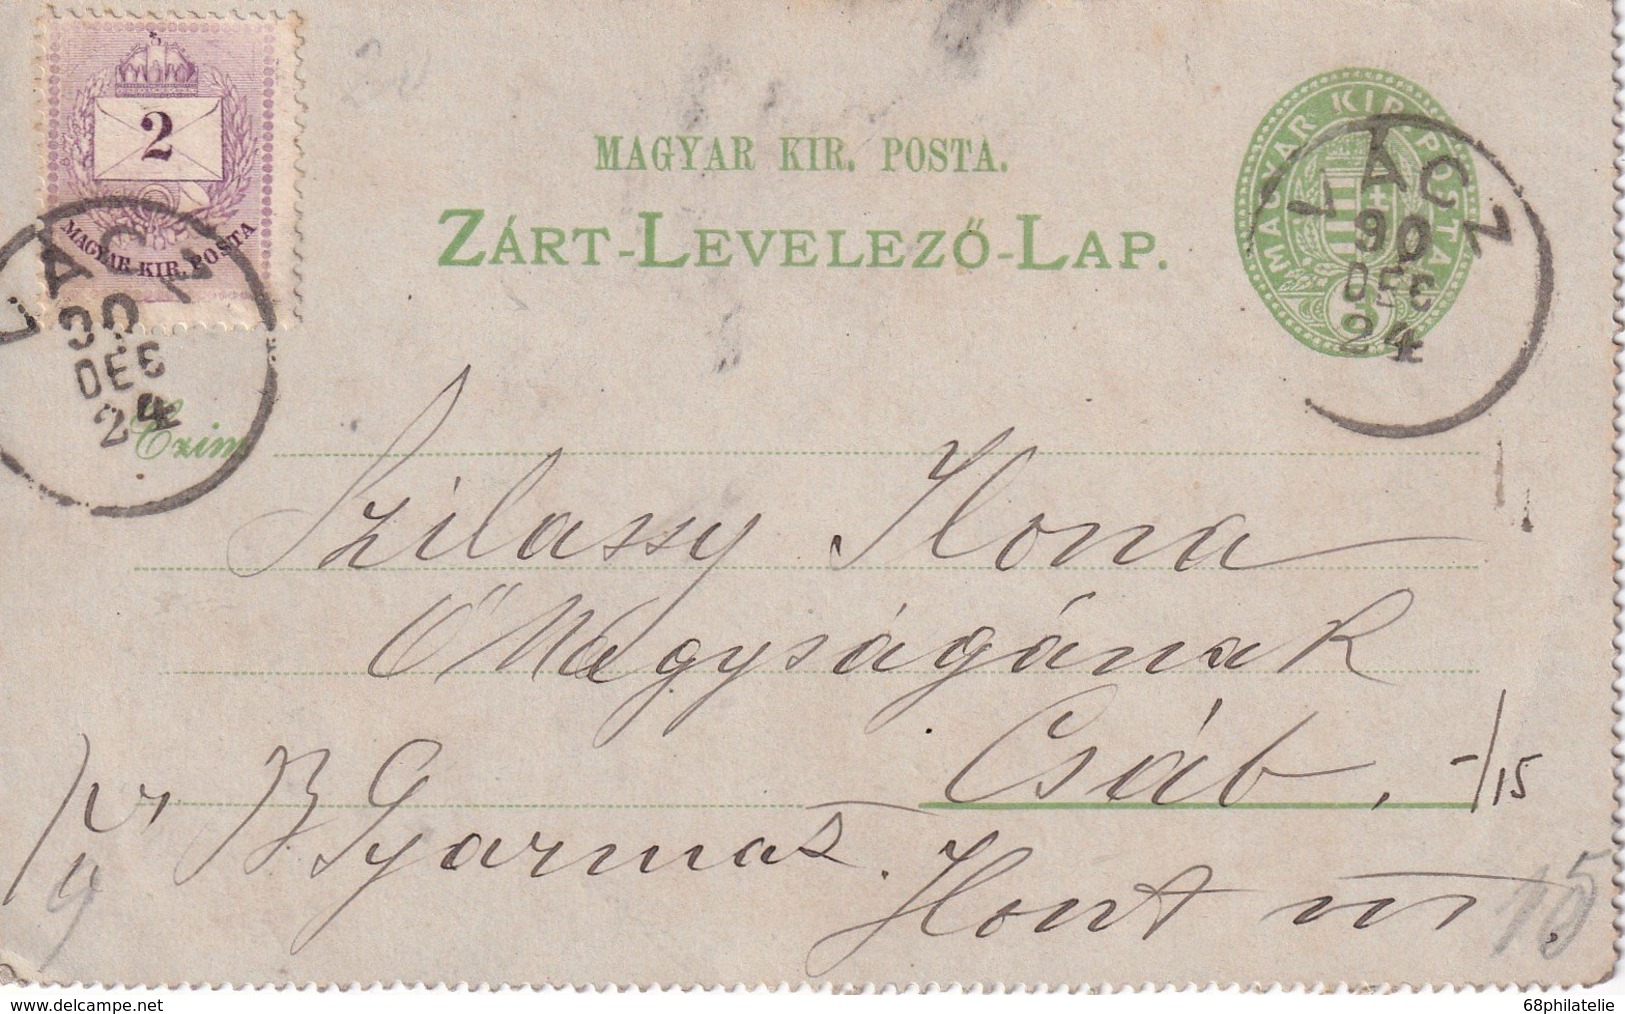 2
MAGYAR KIR. POSTA
MAGYAR KIR. POSTA.
ZÁRT-LEVELEZŐ-LAP.
MAGYAR KIR. POSTA
VÁCZ
90
DEC
24
VÁCZ
90
DEC
24
Czim
Szilassy Ilona
Ő Nagyságának
Csáb. -/15
B Gyarmat
Hont m.
15
www.delcampe.net
68philatelie